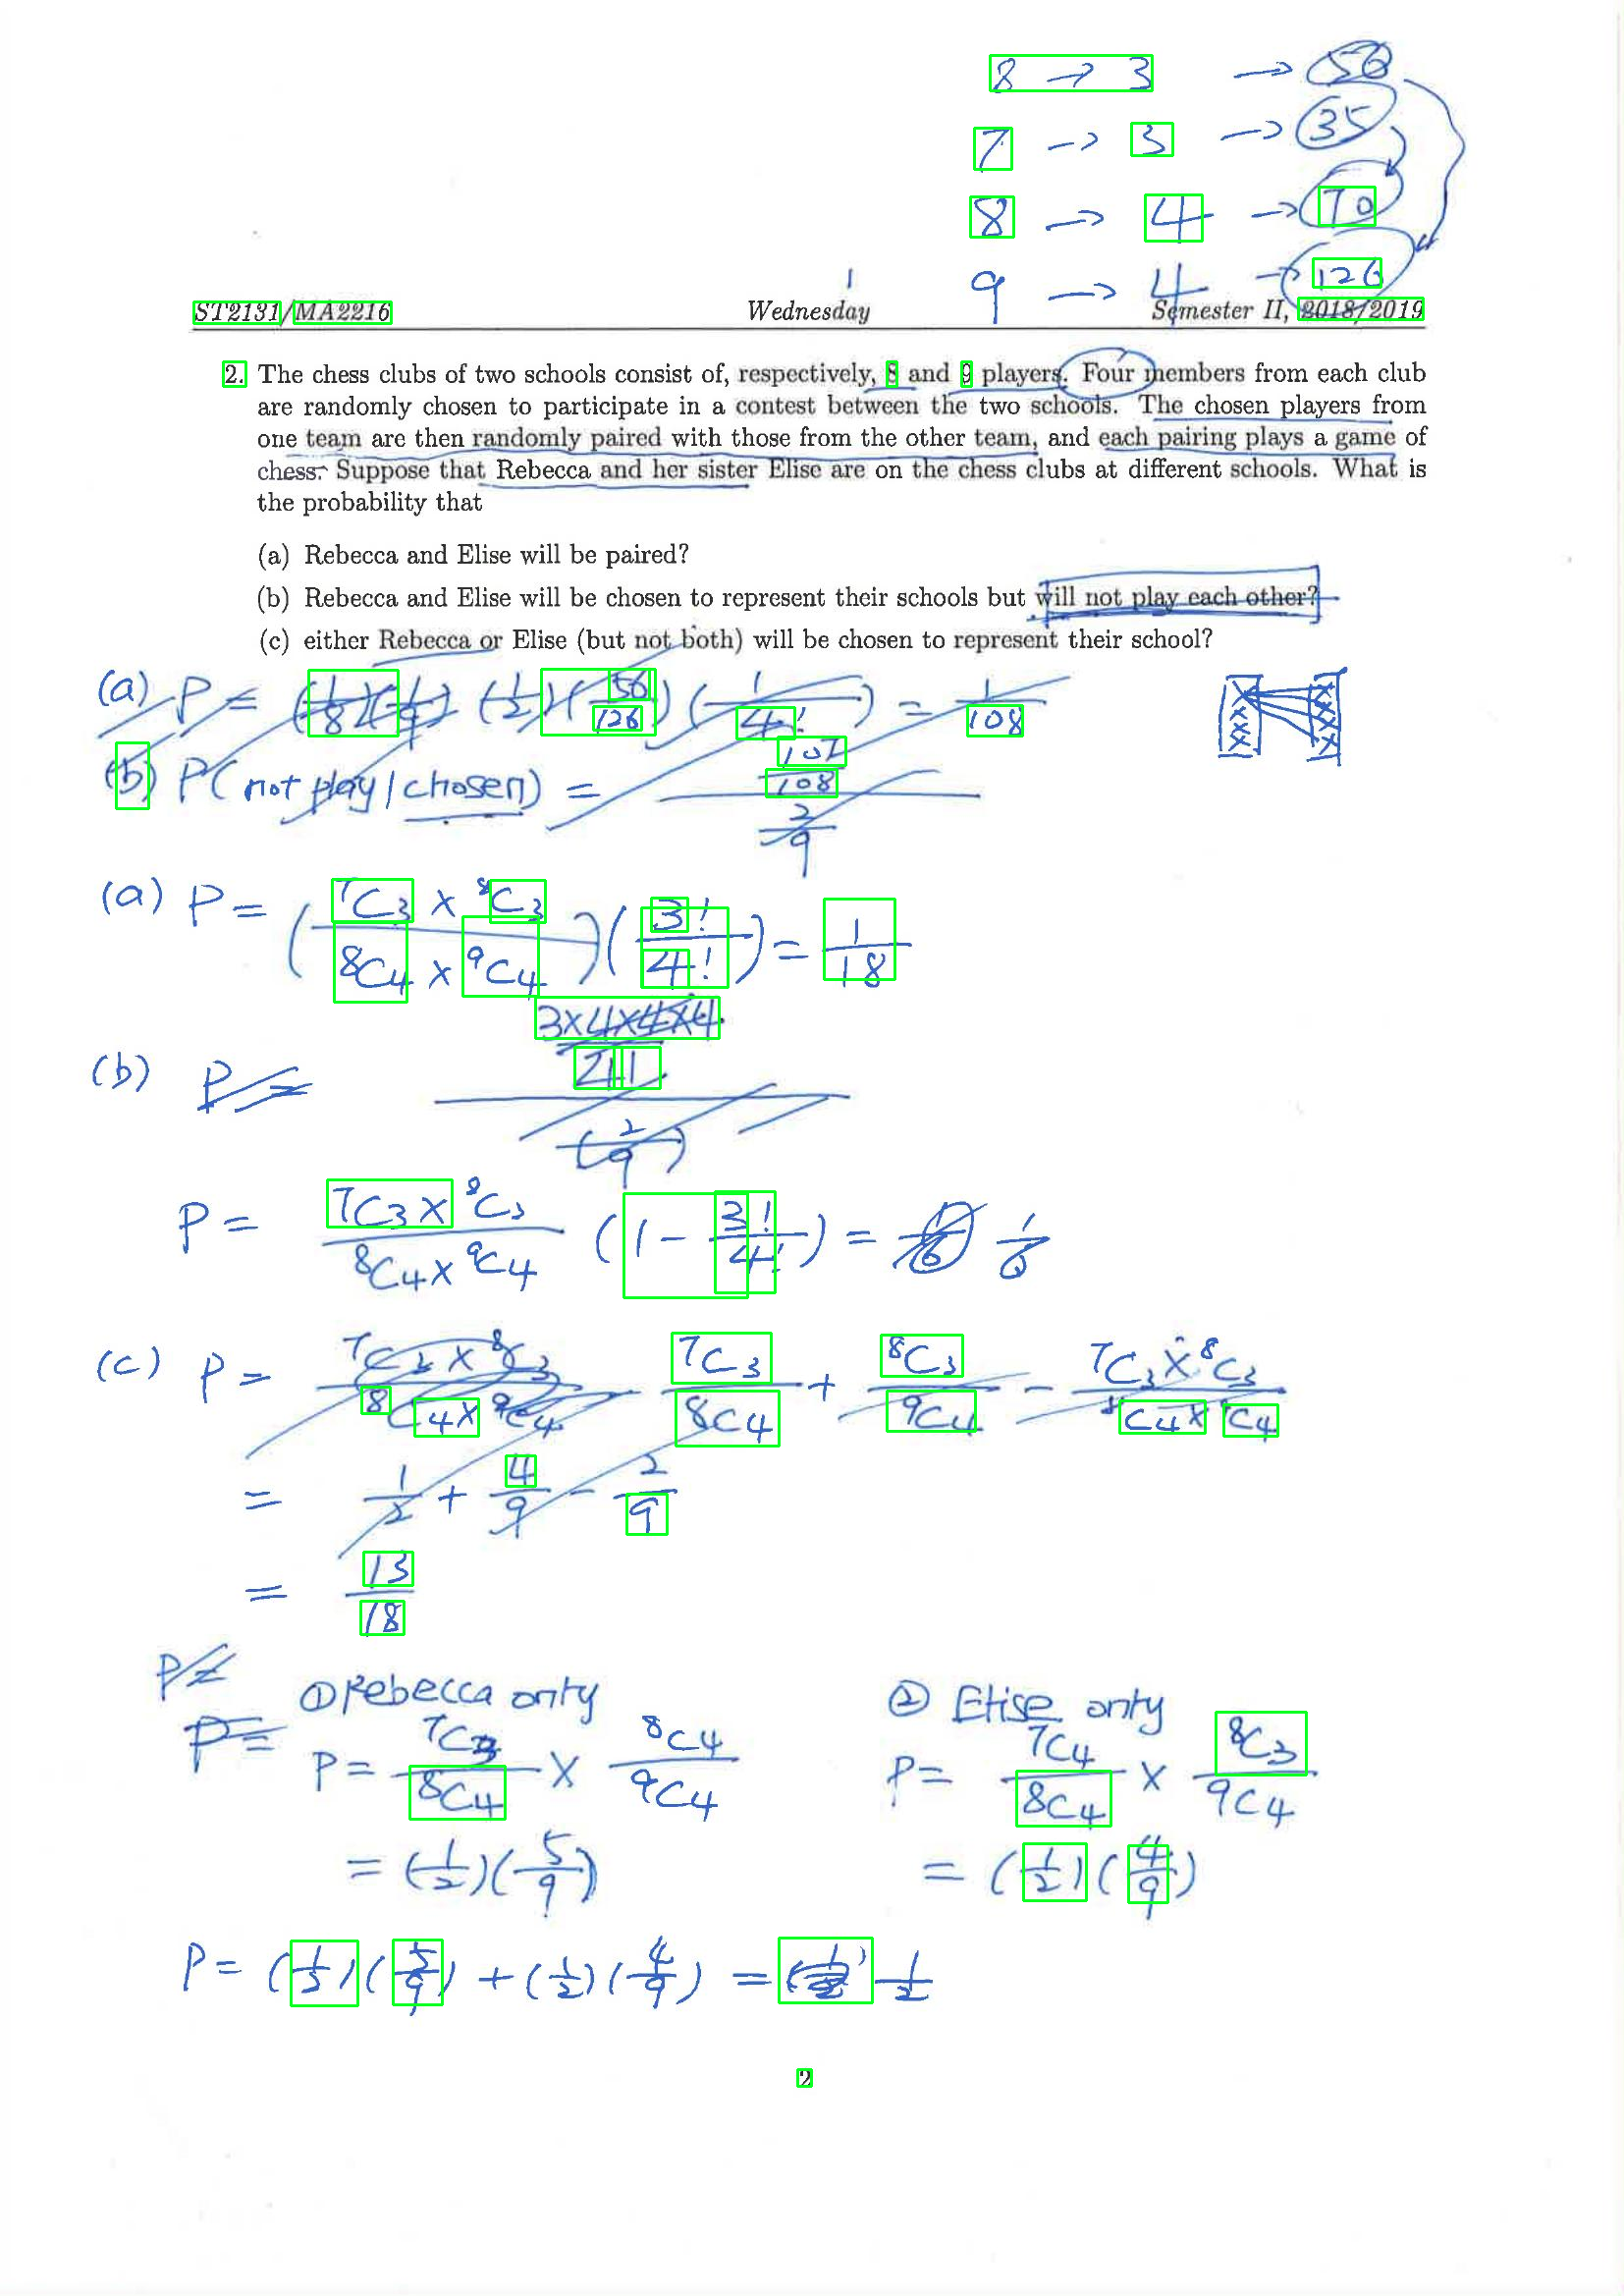 8 → 3 → 56
7 → 3 → 35
8 → 4 → 70
9 → 4 → 126
ST2131/MA2216 Wednesday Semester II, 2018/2019
2. The chess clubs of two schools consist of, respectively, 8 and 9 players. Four members from each club
are randomly chosen to participate in a contest between the two schools. The chosen players from
one team are then randomly paired with those from the other team, and each pairing plays a game of
chess. Suppose that Rebecca and her sister Elise are on the chess clubs at different schools. What is
the probability that
(a) Rebecca and Elise will be paired?
(b) Rebecca and Elise will be chosen to represent their schools but will not play each other?
(c) either Rebecca or Elise (but not both) will be chosen to represent their school?
(a) P = (1/8)(1/9) (1/2)(56/126)(1/4!) = 1/108
(b) P(not play | chosen) = (107/108)/(2/9)
(a) P = (7C3 × 8C3 / 8C4 × 9C4)(3!/4!) = 1/18
3×4×4×4
(b) P =
(2/9)
P = 7C3 × 8C3 / 8C4 × 9C4 (1 - 3!/4!) = 1/6
(c) P = 7C3 × 8C3 / 8C4 × 9C4 7C3/8C4 + 8C3/9C4 - 7C3 × 8C3 / 8C4 × 9C4
= 1/2 + 4/9 - 2/9
= 13/18
P =
① Rebecca only ② Elise only
P =
P = 7C3/8C4 × 8C4/9C4 P = 7C4/8C4 × 8C3/9C4
= (1/2)(5/9) = (1/2)(4/9)
P = (1/2)(5/9) + (1/2)(4/9) = 1/2
2